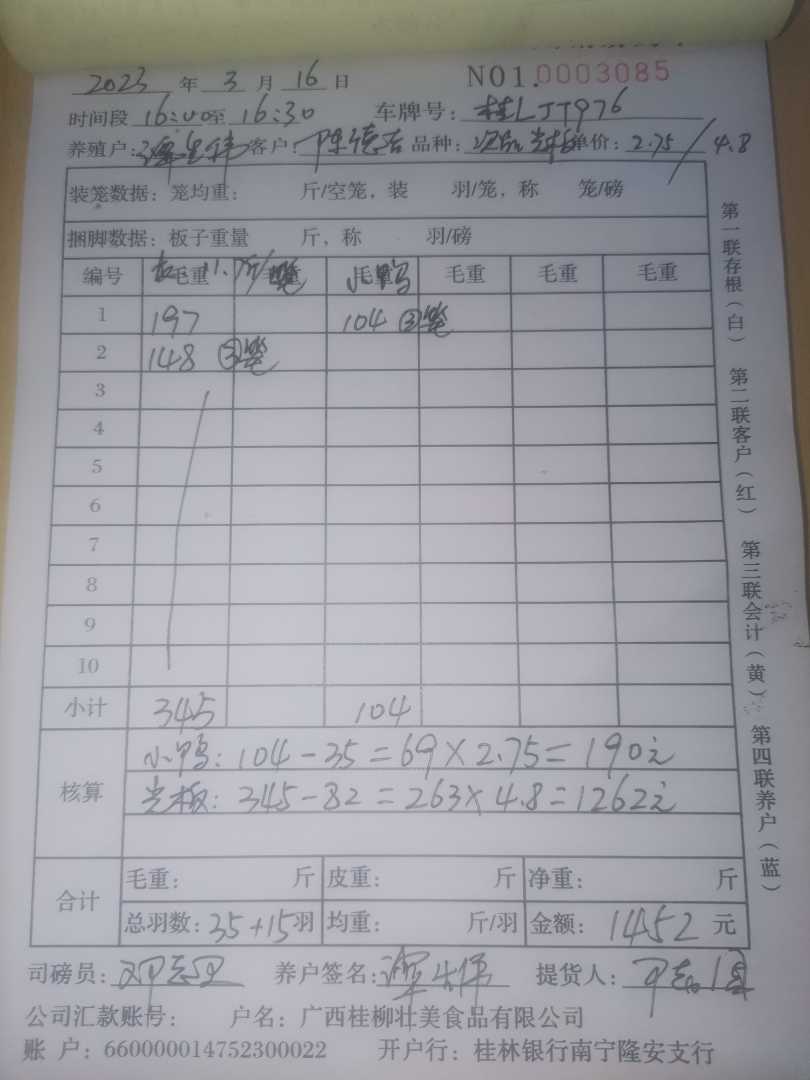 2023 年 3 月 16 日 NO1.0003085
时间段 16:00至 16:30 车牌号: 桂LJT976
养殖户: 客户: 陈德 品种: 光板 单价: 2.75/4.8
装笼数据: 笼均重: 斤/空笼, 装 羽/笼, 称 笼/磅
捆脚数据: 板子重量 斤, 称 羽/磅
编号 毛重 毛重 毛重 毛重 毛重 毛重
小鸭
1 197 104 ③笼
2 148 ⑤笼
3
4
5
6
7
8
9
10
小计 345 104
核算
小鸭: 104-35=69×2.75=190元
光板: 345-82=263×4.8=1262元
合计
毛重: 斤 皮重: 斤 净重: 斤
总羽数: 35+15羽 均重: 斤/羽 金额: 1452 元
司磅员: 养户签名: 提货人:
公司汇款账号: 户名: 广西桂柳壮美食品有限公司
账 户: 660000014752300022 开户行: 桂林银行南宁隆安支行
第一联存根(白) 第二联客户(红) 第三联会计(黄) 第四联养户(蓝)